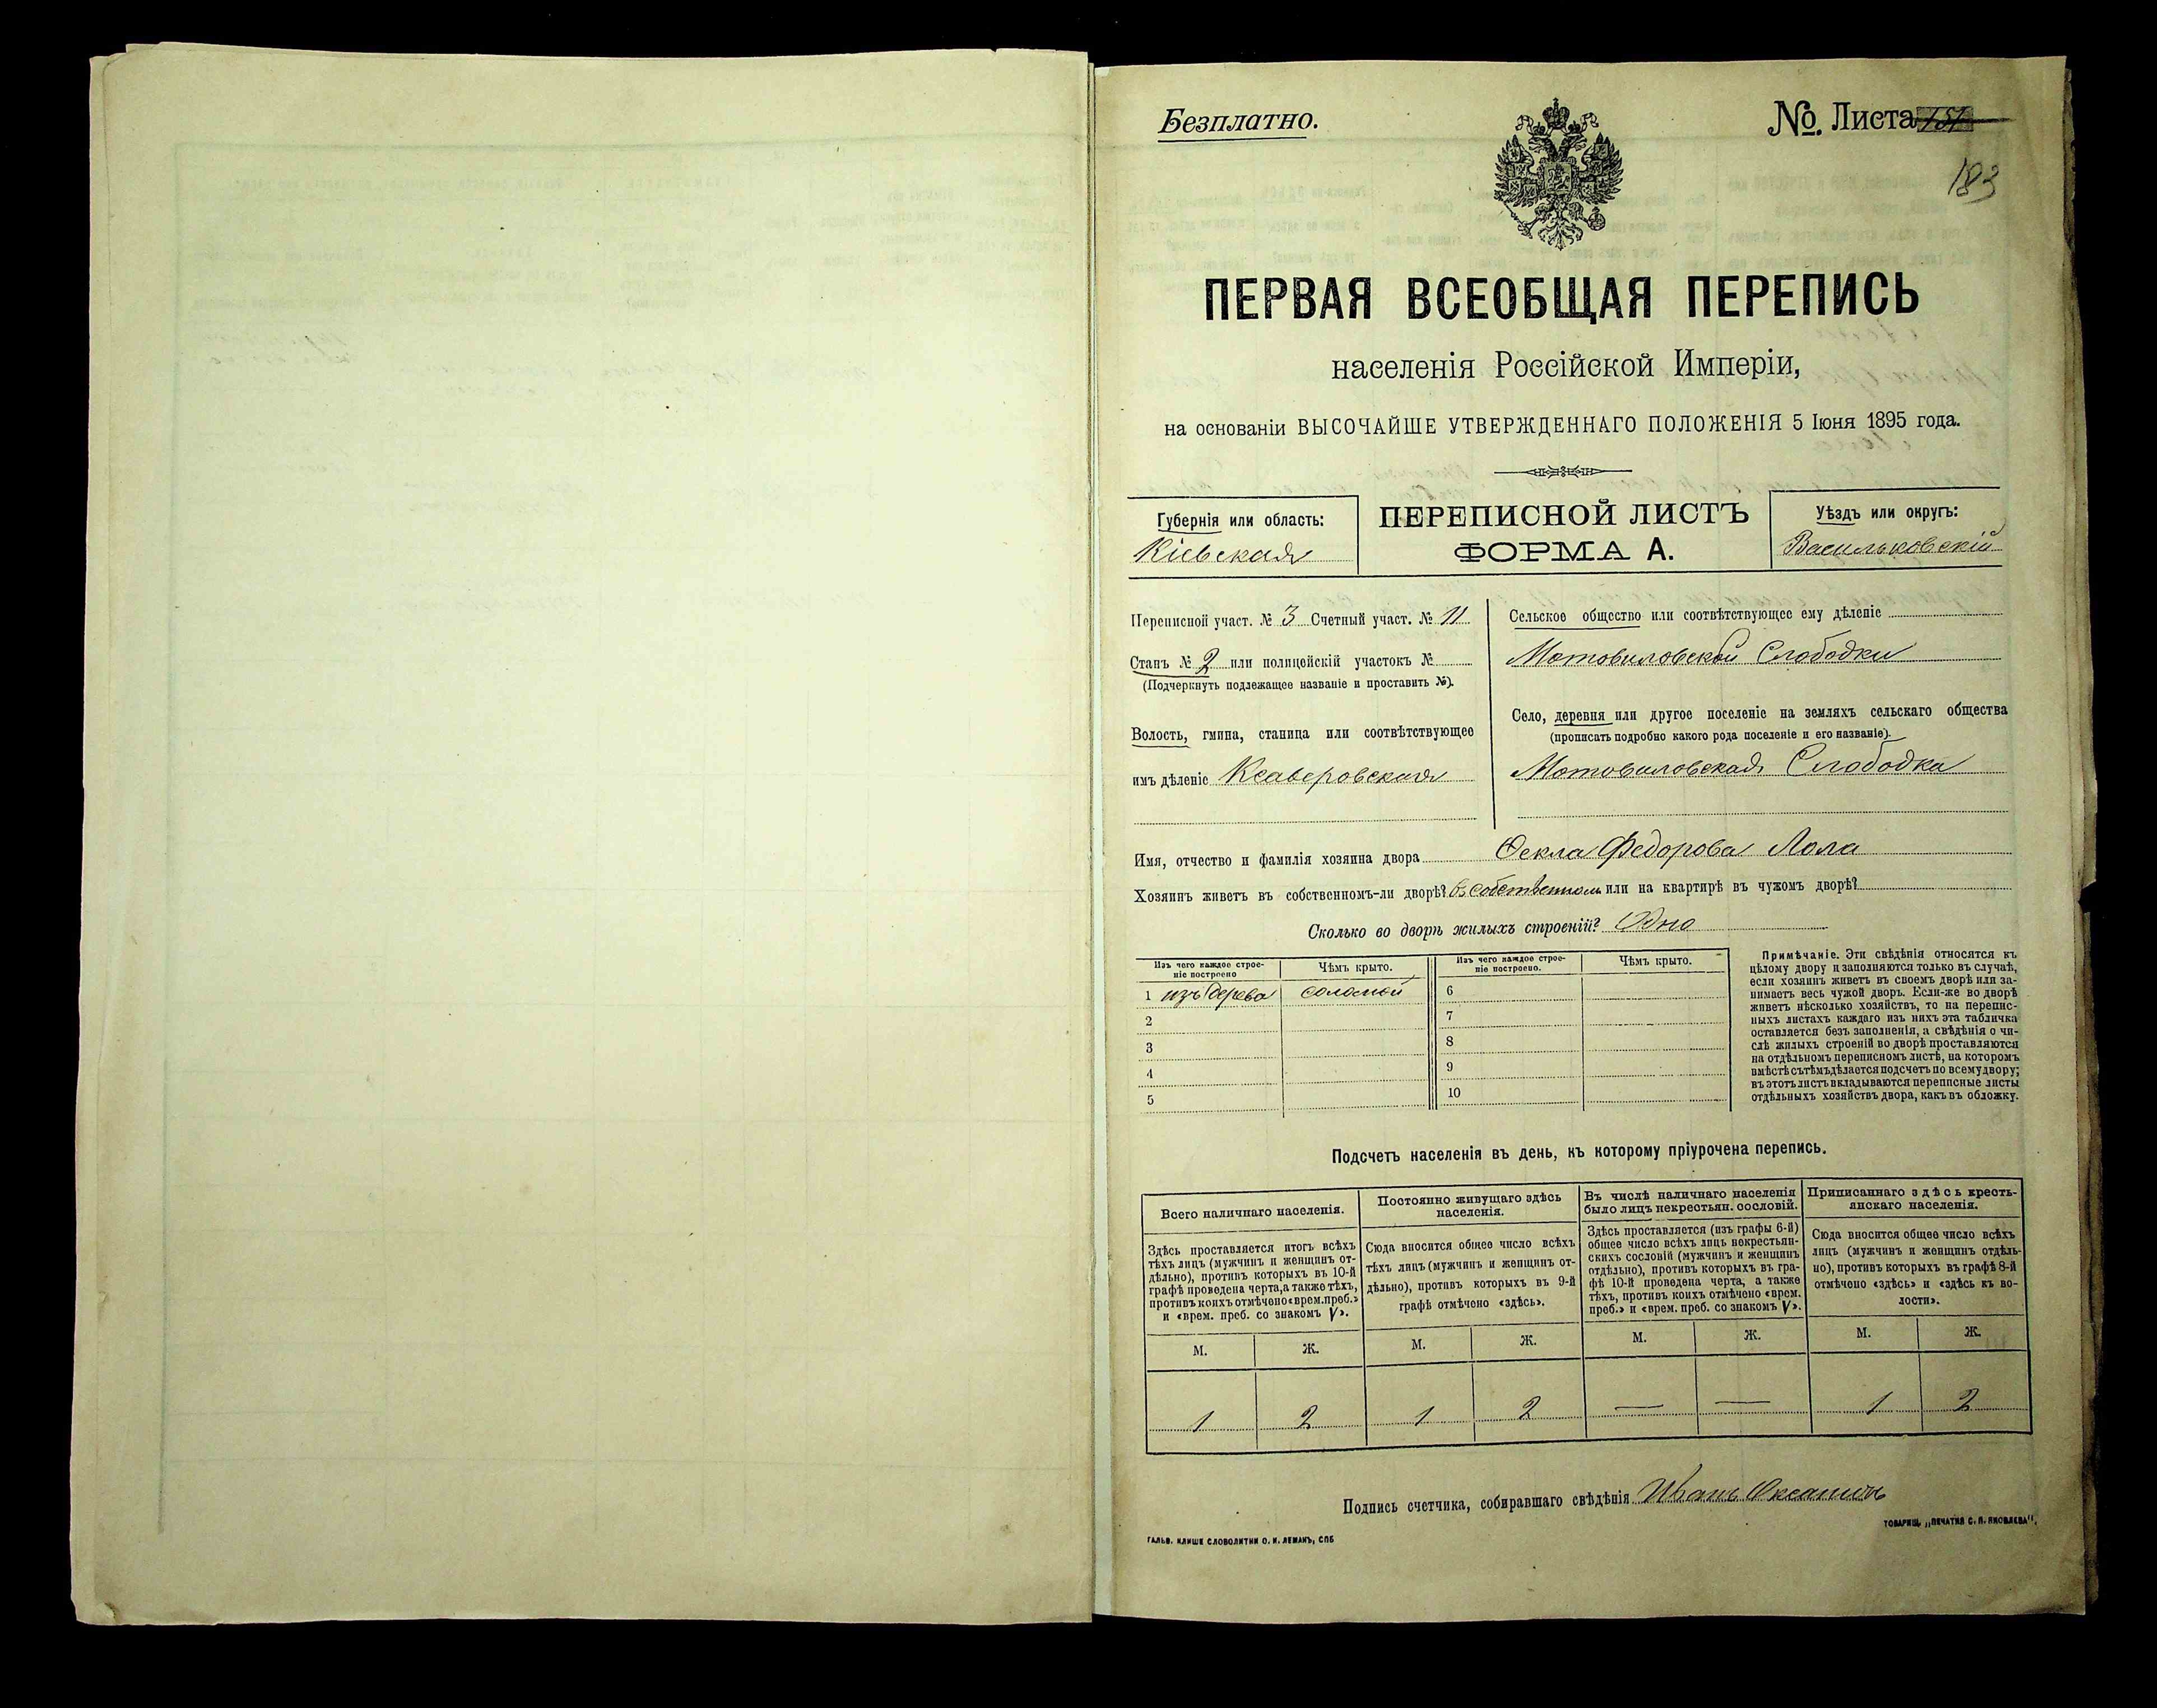 Безплатно.
№. Листа
183
ПЕРВАЯ ВСЕОБЩАЯ ПЕРЕПИСЬ
населенія Россійской Имперіи,
на основаніи ВЫСОЧАЙШЕ УТВЕРЖДЕННАГО ПОЛОЖЕНІЯ 5 Іюня 1895 года.
Губернія или область:
Кіевская
ПЕРЕПИСНОЙ ЛИСТЪ
ФОРМА А.
Уѣздъ или округъ:
Васильковскій
Переписной участ. № 3 Счетный участ. № 11
Станъ № 2 или полицейскій участокъ №
(Подчеркнуть подлежащее названіе и проставить №).
Волость, гмина, станица или соотвѣтствующее
имъ дѣленіе Ксаверовская
Сельское общество или соотвѣтствующее ему дѣленіе
Мотовиловской Слободки
Село, деревня или другое поселеніе на земляхъ сельскаго общества
(прописать подробно какого рода поселеніе и его названіе).
Мотовиловская Слободка
Имя, отчество и фамилія хозяина двора Ѳекла Федорова Лола
Хозяинъ живетъ въ собственномъ-ли дворѣ? въ собственном или на квартирѣ въ чужомъ дворѣ?
Сколько во дворѣ жилыхъ строеній? Одно
Изъ чего каждое строе-
ніе построено
Чѣмъ крыто.
Изъ чего каждое строе-
ніе построено.
Чѣмъ крыто.
1 изъ дерева соломой 6
2 7
3 8
4 9
5 10
Примѣчаніе. Эти свѣдѣнія относятся къ
цѣлому двору и заполняются только въ случаѣ,
если хозяинъ живетъ въ своемъ дворѣ или за-
нимаетъ весь чужой дворъ. Если-же во дворѣ
живетъ нѣсколько хозяйствъ, то на перепис-
ныхъ листахъ каждаго изъ нихъ эта табличка
оставляется безъ заполненія, а свѣдѣнія о чи-
слѣ жилыхъ строеній во дворѣ проставляются
на отдѣльномъ переписномъ листѣ, на которомъ
вмѣстѣ съ тѣмъ дѣлается подсчетъ по всему двору;
въ этотъ листъ вкладываются переписные листы
отдѣльныхъ хозяйствъ двора, какъ въ обложку.
Подсчетъ населенія въ день, къ которому пріурочена перепись.
Всего наличнаго населенія.
Здѣсь проставляется итогъ всѣхъ
тѣхъ лицъ (мужчинъ и женщинъ от-
дѣльно), противъ которыхъ въ 10-й
графѣ проведена черта, а также тѣхъ,
противъ коихъ отмѣчено «врем. преб.»
и «врем. преб. со знакомъ V».
Постоянно живущаго здѣсь
населенія.
Сюда вносится общее число всѣхъ
тѣхъ лицъ (мужчинъ и женщинъ от-
дѣльно), противъ которыхъ въ 9-й
графѣ отмѣчено «здѣсь».
Въ числѣ наличнаго населенія
было лицъ некрестьян. сословій.
Здѣсь проставляется (изъ графы 6-й)
общее число всѣхъ лицъ некрестьян-
скихъ сословій (мужчинъ и женщинъ
отдѣльно), противъ которыхъ въ гра-
фѣ 10-й проведена черта, а также
тѣхъ, противъ коихъ отмѣчено «врем.
преб.» и «врем. преб. со знакомъ V».
Приписаннаго здѣсь кресть-
янскаго населенія.
Сюда вносится общее число всѣхъ
лицъ (мужчинъ и женщинъ отдѣль-
но), противъ которыхъ въ графѣ 8-й
отмѣчено «здѣсь» и «здѣсь къ во-
лости».
М. Ж. М. Ж. М. Ж. М. Ж.
1 2 1 2 — — 1 2
Подпись счетчика, собиравшаго свѣдѣнія Иванъ
ГАЛЬВ. КЛИШЕ СЛОВОЛИТНИ О. И. ЛЕМАНЪ, СПБ
ТОВАРИЩ. „ПЕЧАТНЯ С. П. ЯКОВЛЕВА".